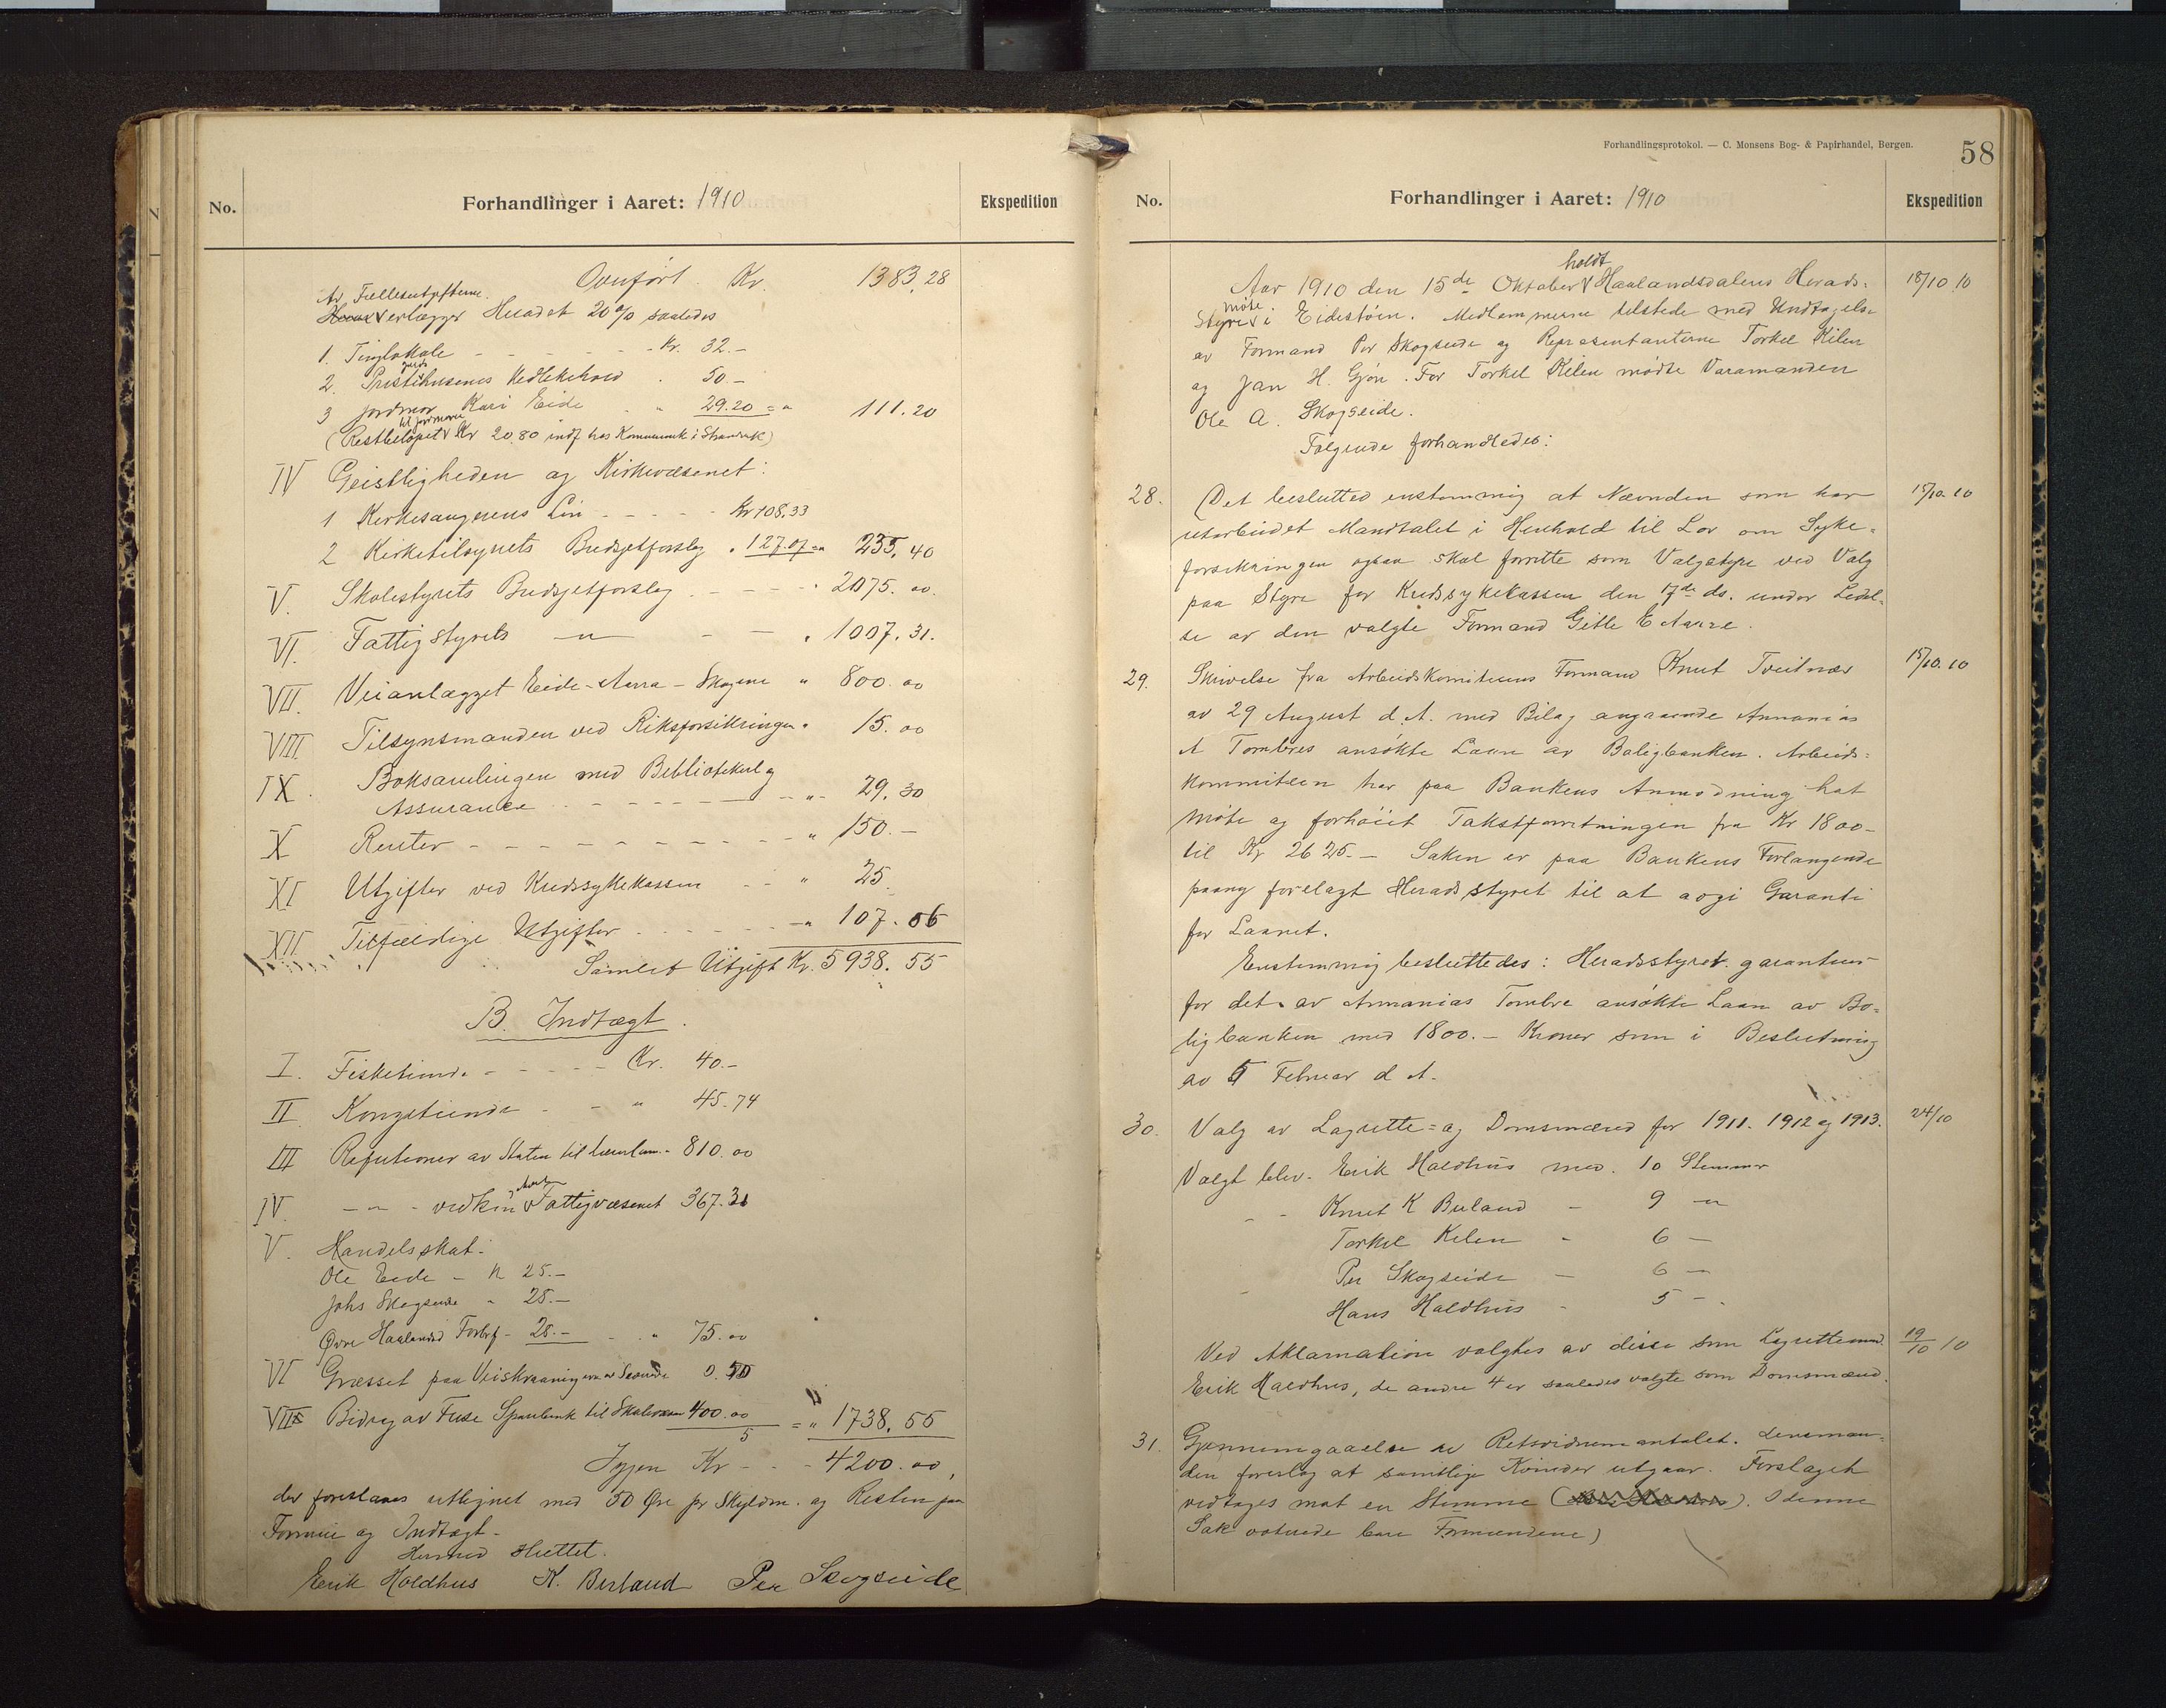 No.
Forhandlinger i Aaret: 1910
Ekspedition
Overført Kr. 1383,28
Av Fællesutgifterne
utlægger Heradet 20% saaledes
1. Tinglokale - - - - - Kr. 32.-
2 Prestegaardshusenes Vedlikehold . 50.-
3 Jordmor Kari Eide " 29.20 = " 111.20
(Restbeløpet til Jordmoren Kr 20.80 indf hos Kommunek i Strandvik)
IV Geistligheden og Kirkevæsenet:
1 Kirkesangerens Løn - - - - Kr 108.33
2 Kirketilsynets Budsjetforslag " 127.07 = " 235,40
V. Skolestyrets Budsjetforslag - - - - " 2075.00.
VI. Fattigstyrets —"— - - " 1007.31.
VII. Veianlægget Eide-Aarra-Skogene " 800.00
VIII. Tilsynsmanden ved Riksforsikringen " 15.00
IX. Boksamlingen med Bibliotekul og
Assurance - - - - - - - " 29,30
X Renter - - - - - - - - - " 150.-
XI Utgifter ved Kredssykekassen - - " 25
XII Tilfældige Utgifter - - - - - - " 107.06
Samlet Utgift Kr. 5938.55
B. Indtægt.
I. Fisketiende - - - - - Kr. 40.-
II. Kongetiende - - - " 45.74
III Refutioner av Staten til Lærerløn - 810.00
IV. -"- - vedkm Fattigvæsenet 367.31
V. Handelsskat:
Ole Eide - Kr 25.-
Johs Skogseide - 25.-
Øvre Haalandsd Forbrf - 25.- - - " 75.00
VI Græsset paa Veiskraaningerne 0.50
VII Bidrag av Fuse Sparebank til Skolevæsen 400.00 = " 1738.55
Igjen Kr - - - 4200.00,
der foreslaaes utlignet med 50 Øre pr Skyldm. og Resten paa
Formue og Indtægt.
Hermed sluttet.
Erik Holdhus K. Berland Per Skogseide
Forhandlingsprotokol. — C. Monsens Bog- & Papirhandel, Bergen.
58
No.
Forhandlinger i Aaret: 1910
Ekspedition
Aar 1910 den 15de Oktober holdt Haalandsdalens Herads- 18/10 10
styre møte i Eidestøen. Medlemmerne tilstede med Undtagelse
av Formand Per Skogseide og Representanterne Torkel Kilen
og Jan H. Gjøn. For Torkel Kilen mødte Varamanden
Ole A. Skogseide.
Følgende forhandledes:
28. Det besluttes enstemmig at Nævnden som har 15/10.10
utarbeidet Mandtalet i Henhold til Lov om Syke-
forsikringen ogsaa skal forrette som Valgstyre ved Valg
paa Styre for Kredssykekassen den 17de ds. under Ledel-
se av den valgte Formand Gitle E Aarre.
29. Skrivelse fra Arbeidskomiteens Formand Knut Tveitnæs 15/10.10
av 29 August d. A. med Bilag angaaende Annanias
A Tombres ansøkte Laan av Boligbanken. Arbeids-
kommiteen har paa Bankens Anmodning hat
Møte og forhøiet Takstforretningen fra Kr 1800-
til Kr 2625.- Saken er paa Bankens Forlangende
paany forelagt Heradsstyret til at avgi Garanti
for Laanet.
Enstemmig besluttedes: Heradsstyret garanterer
for det av Annanias Tombre ansøkte Laan av Bo-
ligbanken med 1800.- Kroner som i Beslutning
av 5 Februar d A.
30. Valg av Lagrette- og Domsmænd for 1911. 1912 og 1913. 24/10
Valgt blev. Erik Haldhus med. 10 Stemmer
- - Knut K Buland - 9 —"
Torkel Kilen - 6 —
- Per Skogseide — 6 —
Hans Haldhus - 5 -.
Ved Aklamation valgtes av disse som Lagrettemand. 19/10 10
Erik Haldhus, de andre 4 er saaledes valgte som Domsmænd.
31. Gjennemgaaelse av Retsvidnemantalet. Lensman-
den foreslog at samtlige Kvinder utgaar. Forslaget
vedtages mot en Stemme ( ). I denne
Sak voterede bare Formændene)